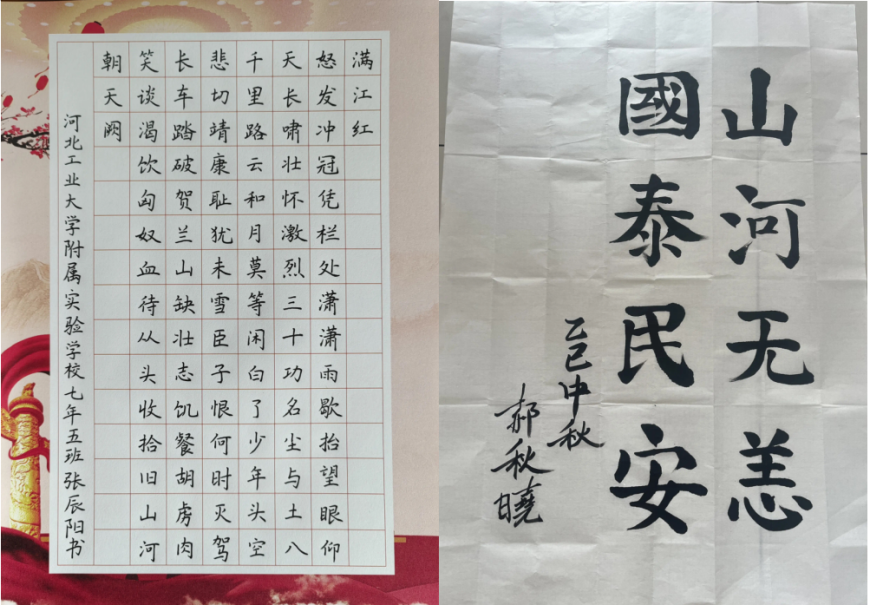 满江红
怒发冲冠凭栏处潇潇雨歇抬望眼仰
天长啸壮怀激烈三十功名尘与土八
千里路云和月莫等闲白了少年头空
悲切靖康耻犹未雪臣子恨何时灭驾
长车踏破贺兰山缺壮志饥餐胡虏肉
笑谈渴饮匈奴血待从头收拾旧山河
朝天阙
河北工业大学附属实验学校七年五班 张辰阳书
山河无恙
國泰民安
乙巳中秋
郝秋曉